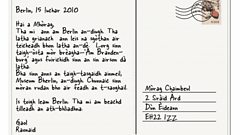 Berlin, 15 Iuchar 2010
Hai a Mhòrag,
Tha mi ann am Berlin an-diugh. Tha
latha grianach ann leis na sgòthan air
teicheadh bhon latha an-dè. Lorg sinn
taigh-òsta mòr brèagha. Am
agus fuirichidh sinn an an
Bha sinn anns an taigh-tasgaidh ainmeil,
Museum Bherlin, an-diugh. Chunnaic sinn
mòran rudan bho air feadh an t-saoghail.
Is toigh leam Berlin. Tha mi am beachd
tilleadh an ath-bhliadhna.
Gaol
Raonaid
Mòrag Chaimbeul
2 Sràid Àrd
Dùn Èideann
EH22 1ZZ